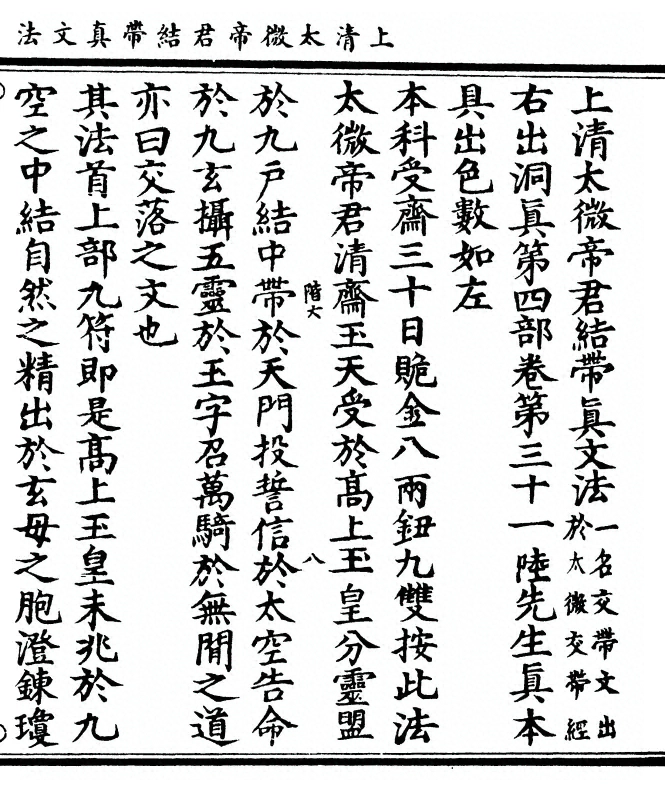 上清太微帝君結帶真文法
上清太微帝君結帶眞文法一名交帶文出
於太微交帶經
右出洞眞第四部卷第三十一陸先生眞本
具出色數如左
本科受齋三十日貺金八兩鈕九雙按此法
太微帝君清齋玉天受於高上玉皇分靈盟
階大
八
於九戶結中帶於天門投誓信於太空告命
於九玄攝五靈於玉字召萬騎於無閒之道
亦曰交落之文也
其法首上部九符即是高上玉皇未兆於九
空之中結自然之精出於玄母之胞澄鍊瓊